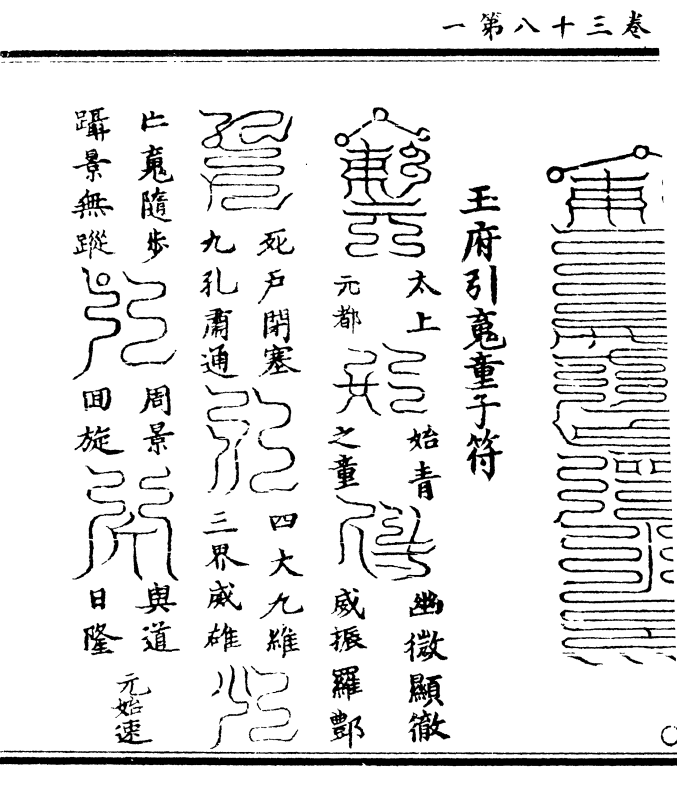 卷三十八第一
玉府引䰟童子符
太上
元都
始青
之童
幽微顯徹
威振羅酆
死戶閉塞
九孔肅通
四大九維
三界威雄
䰟隨步
躡景無蹤
周景
回旋
與道
日隆
元始速